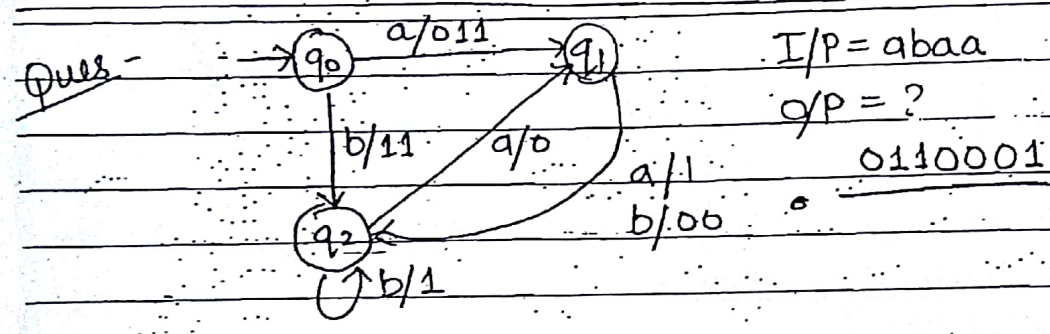 Ques -
q0
a/011
q1
I/P = abaa
O/P = ?
b/11
a/0
a/1
0110001
b/00
q2
b/1